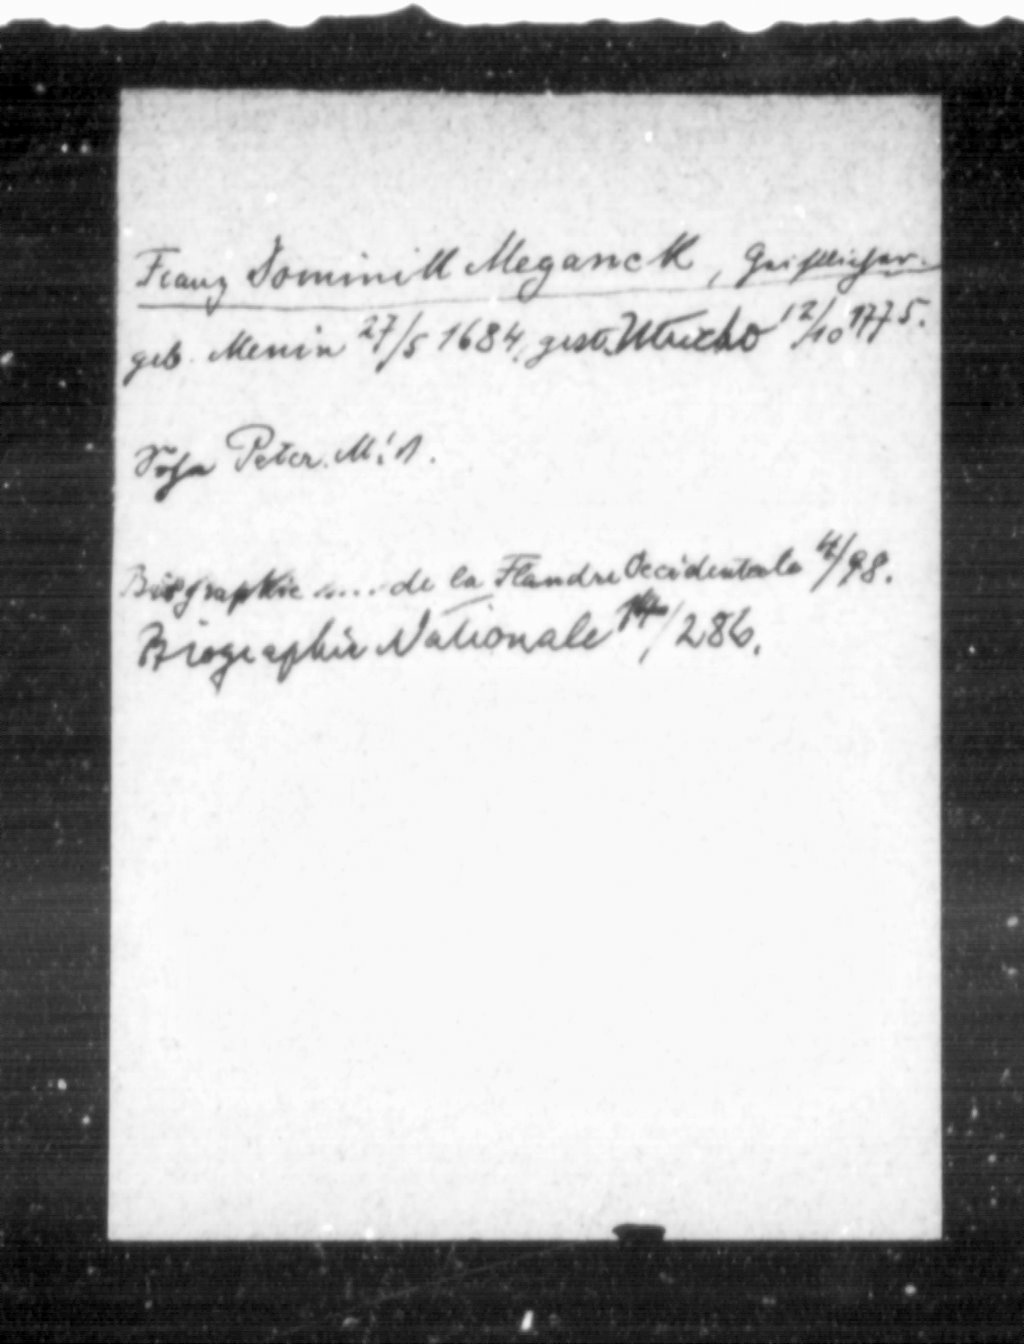 Franz Dominikk Meganck, Geistlicher.
geb. Menin 27/5 1684, gest. Utrecht 12/10 1775.
Sohn Peter M.'s.
Biographie .... de la Flandre Occidentale 4/98.
Biographie Nationale 14/286.